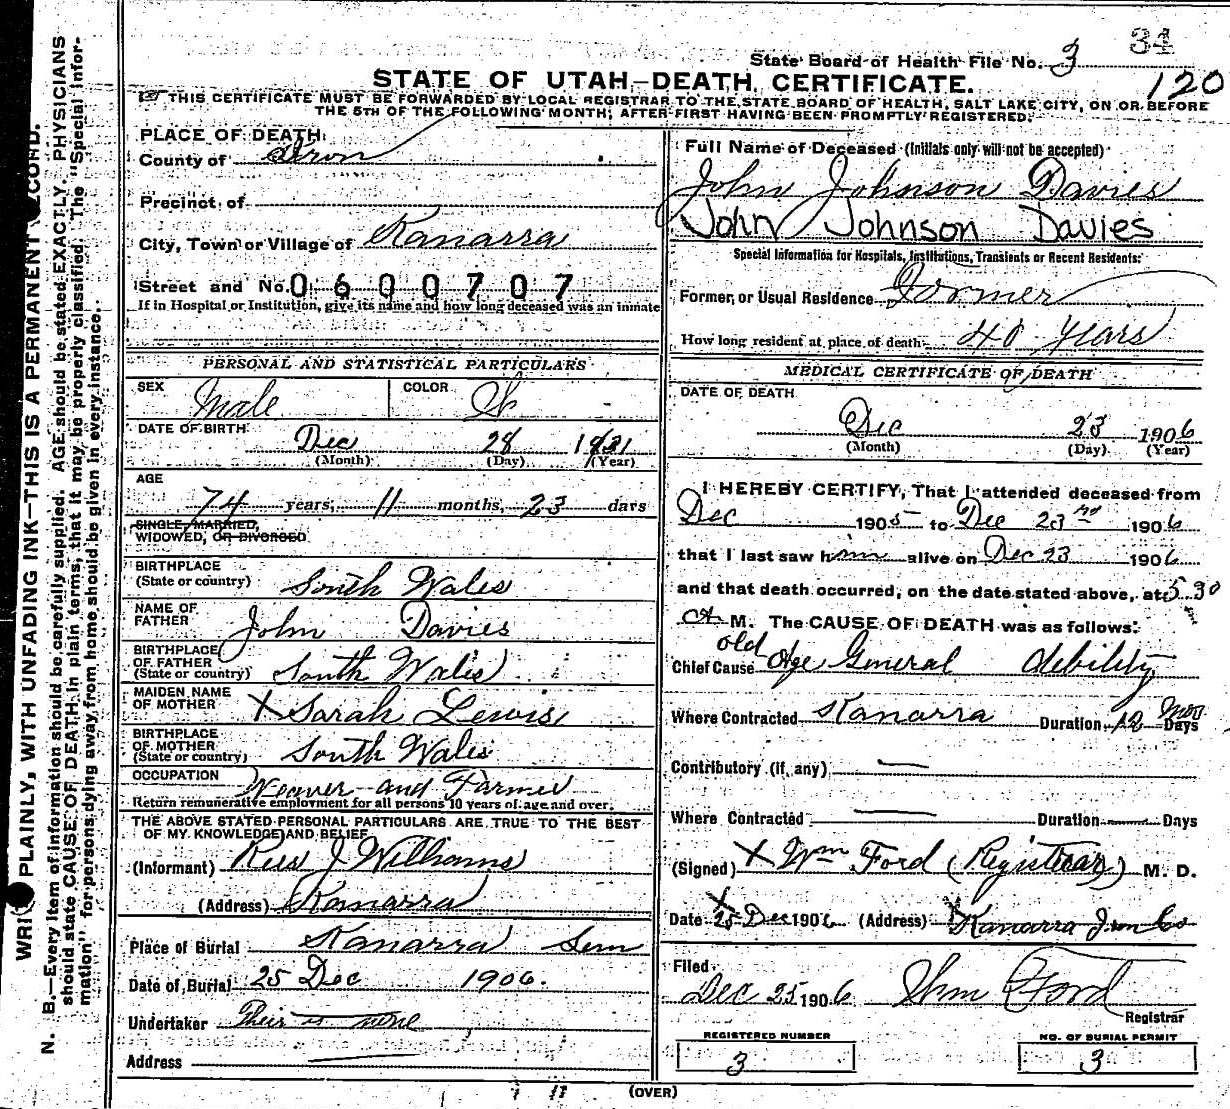 State Board of Health File No. 3 34
STATE OF UTAH—DEATH CERTIFICATE. 120
THIS CERTIFICATE MUST BE FORWARDED BY LOCAL REGISTRAR TO THE STATE BOARD OF HEALTH, SALT LAKE CITY, ON OR BEFORE
THE 5TH OF THE FOLLOWING MONTH, AFTER FIRST HAVING BEEN PROMPTLY REGISTERED.
PLACE OF DEATH:
County of Iron
Precinct of
City, Town or Village of Kanarra
Street and No. 0600707
If in Hospital or Institution, give its name and how long deceased was an inmate
PERSONAL AND STATISTICAL PARTICULARS
SEX Male COLOR W
DATE OF BIRTH Dec 28 1831
(Month) (Day) (Year)
AGE
74 years, 11 months, 23 days
SINGLE, MARRIED,
WIDOWED, OR DIVORCED
BIRTHPLACE
(State or country) South Wales
NAME OF
FATHER John Davies
BIRTHPLACE
OF FATHER
(State or country) South Wales
MAIDEN NAME
OF MOTHER X Sarah Lewis
BIRTHPLACE
OF MOTHER
(State or country) South Wales
OCCUPATION Weaver and Farmer
Return remunerative employment for all persons 10 years of age and over.
THE ABOVE STATED PERSONAL PARTICULARS ARE TRUE TO THE BEST
OF MY KNOWLEDGE AND BELIEF
(Informant) Rees J Williams
(Address) Kanarra
Place of Burial Kanarra Sem
Date of Burial 25 Dec 1906.
Undertaker Their is none
Address
Full Name of Deceased (Initials only will not be accepted)
John Johnson Davies
John Johnson Davies
Special Information for Hospitals, Institutions, Transients or Recent Residents:
Former or Usual Residence Former
How long resident at place of death 40 years
MEDICAL CERTIFICATE OF DEATH
DATE OF DEATH
Dec 23 1906
(Month) (Day) (Year)
I HEREBY CERTIFY, That I attended deceased from
Dec 1905 to Dec 23rd 1906
that I last saw him alive on Dec 23 1906
and that death occurred, on the date stated above, at 5.30
A. M. The CAUSE OF DEATH was as follows:
Chief Cause old Age General debility
Where Contracted Kanarra Duration 12 Mos Days
Contributory (if any) —
Where Contracted — Duration — Days
(Signed) X Wm Ford (Registrar) M. D.
Date X 25 Dec 1906 (Address) X Kanarra Iron Co
Filed
Dec 25 1906 Wm Ford
Registrar
REGISTERED NUMBER
3
NO. OF BURIAL PERMIT
3
(OVER)
WRITE PLAINLY, WITH UNFADING INK—THIS IS A PERMANENT RECORD.
N. B.—Every item of information should be carefully supplied. AGE should be stated EXACTLY. PHYSICIANS
should state CAUSE OF DEATH in plain terms, that it may be properly classified. The "Special Infor-
mation" for persons dying away from home should be given in every instance.